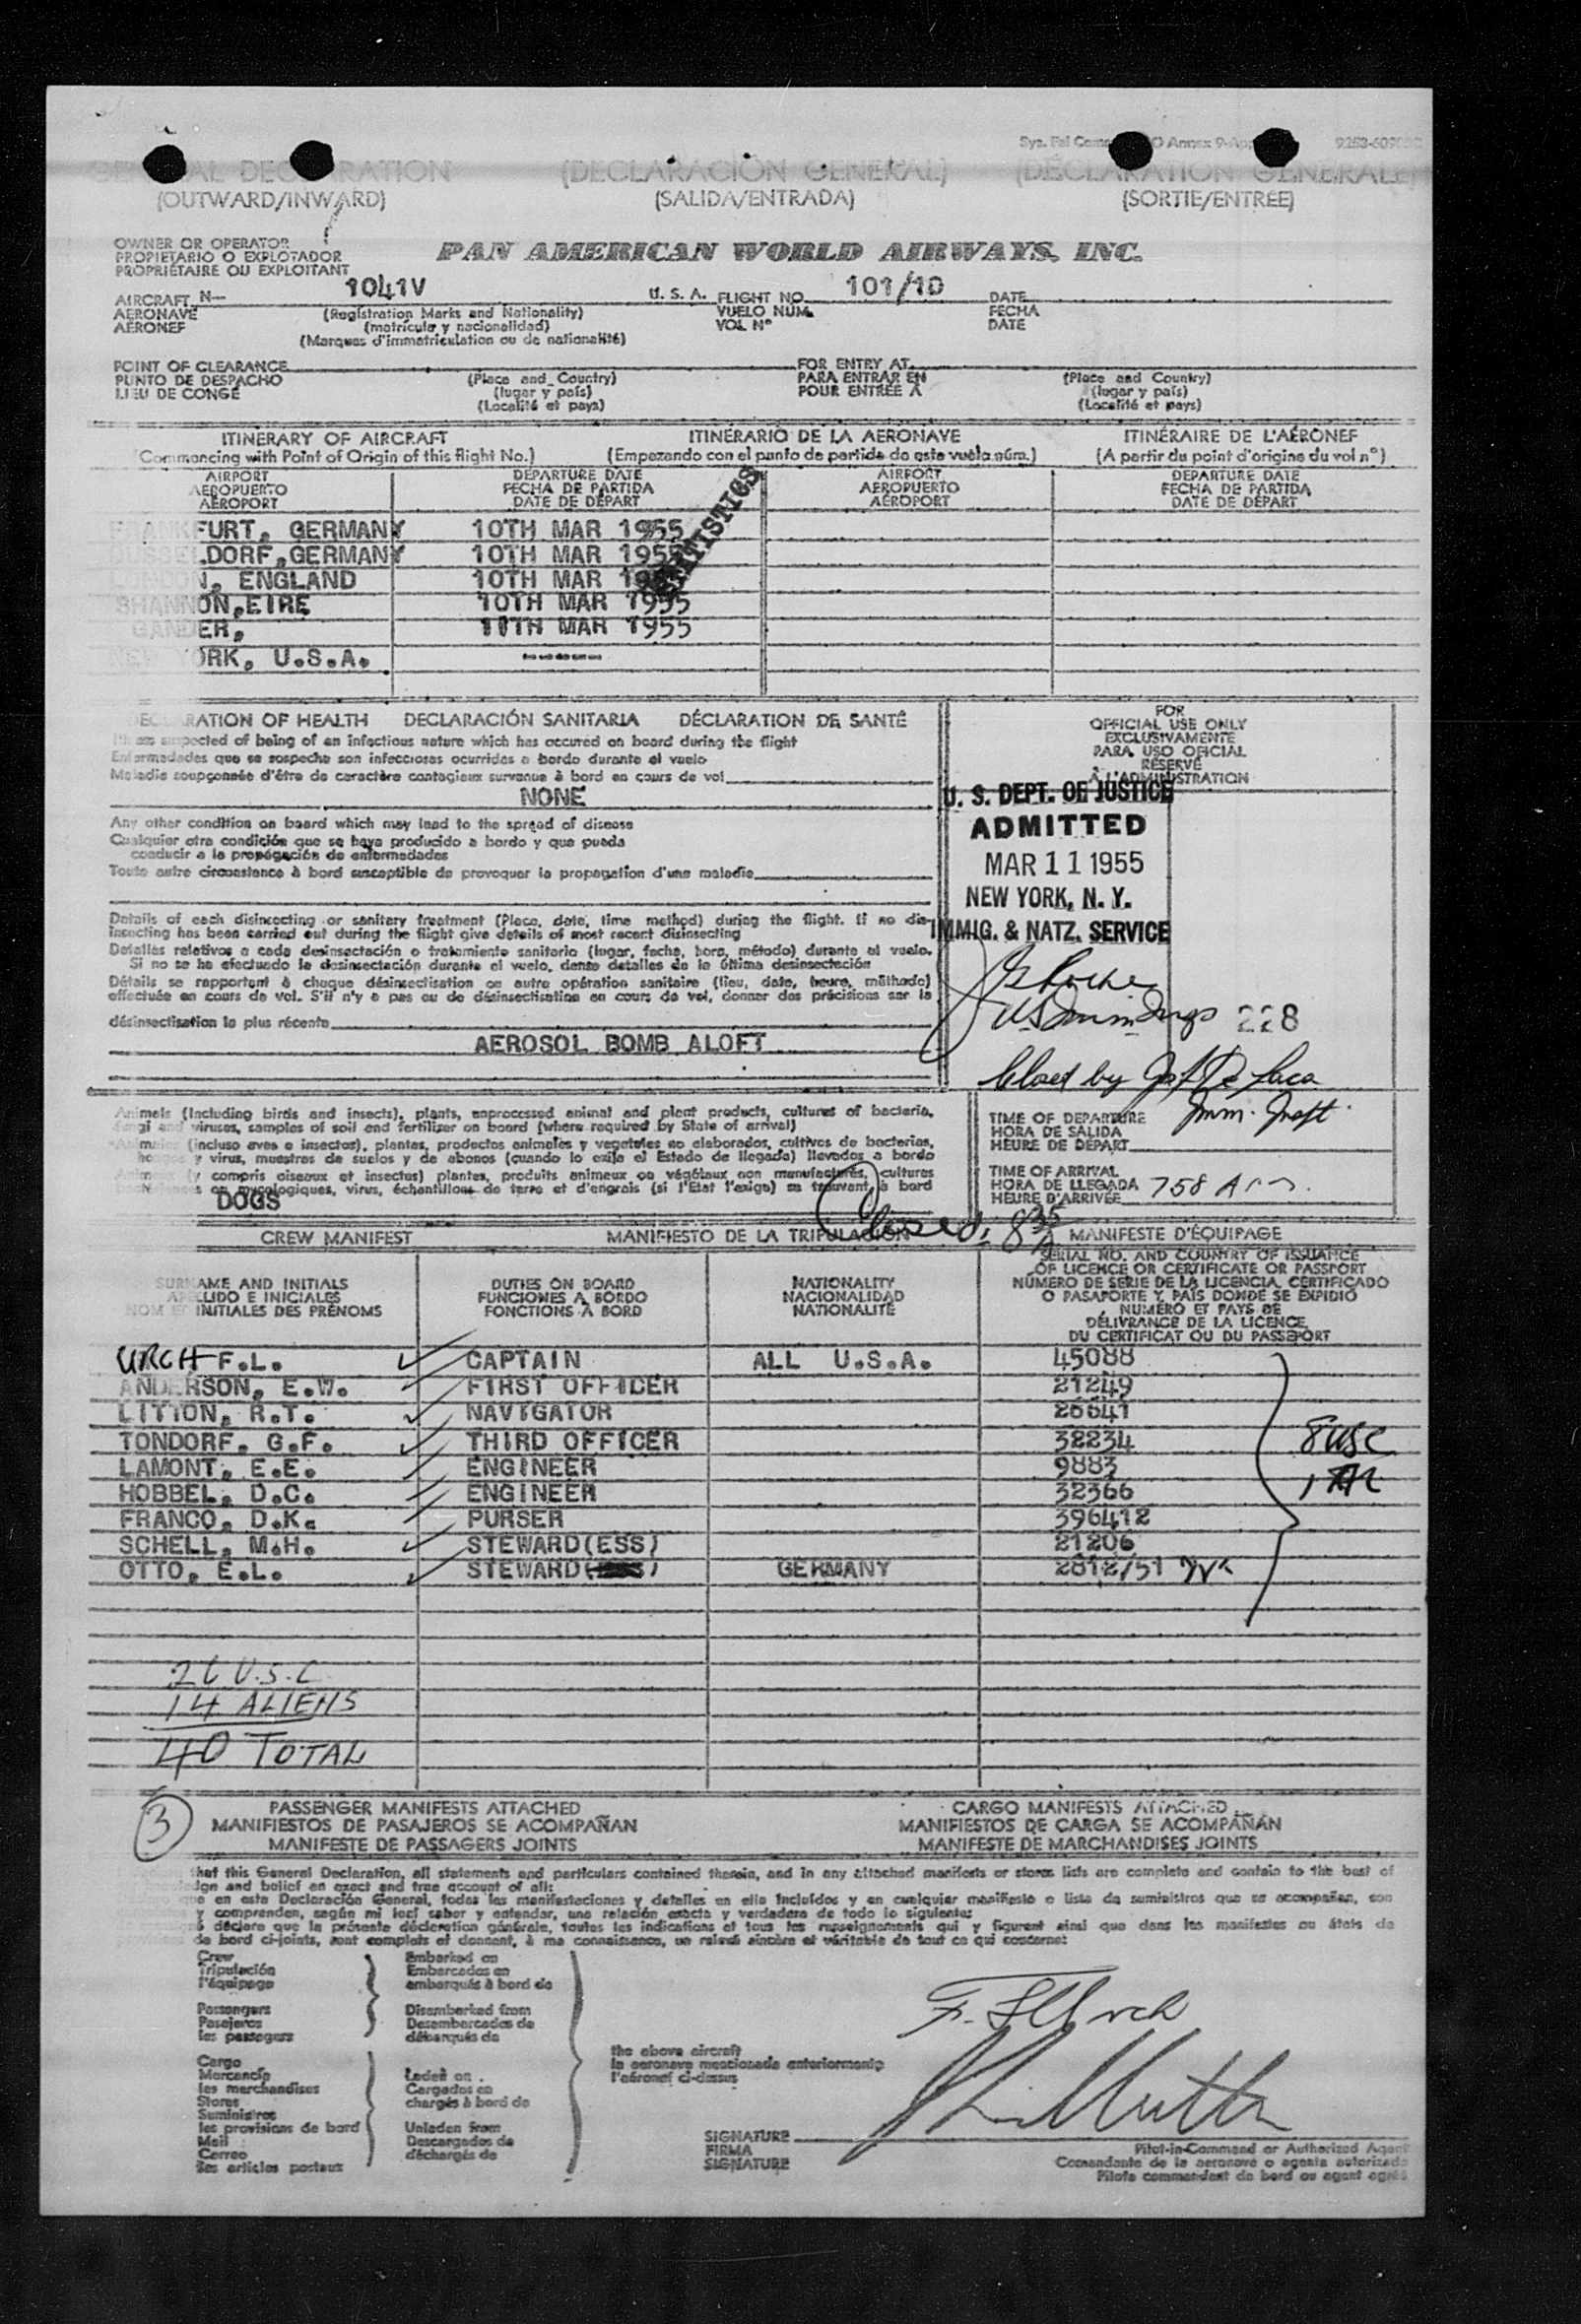 Annex 9-App
(DECLARACIÓN GENERAL) (DÉCLARATION GÉNÉRALE)
(OUTWARD/INWARD) (SALIDA/ENTRADA) (SORTIE/ENTRÉE)
OWNER OR OPERATOR
PROPIETARIO O EXPLOTADOR
PROPRIÉTAIRE OU EXPLOITANT
PAN AMERICAN WORLD AIRWAYS, INC.
AIRCRAFT N— 1041V U. S. A. FLIGHT NO. 101/10 DATE
AERONAVE (Registration Marks and Nationality) VUELO NÚM. FECHA
AÉRONEF (matrícula y nacionalidad) VOL N° DATE
(Marques d'immatriculation ou de nationalité)
POINT OF CLEARANCE FOR ENTRY AT
PUNTO DE DESPACHO (Place and Country) PARA ENTRAR EN (Place and Country)
LIEU DE CONGÉ (lugar y país) POUR ENTRÉE À (lugar y país)
(Localité et pays) (Localité et pays)
ITINERARY OF AIRCRAFT ITINERARIO DE LA AERONAVE ITINÉRAIRE DE L'AÉRONEF
(Commencing with Point of Origin of this flight No.) (Empezando con el punto de partida de este vuelo núm.) (A partir du point d'origine du vol n°)
AIRPORT DEPARTURE DATE AIRPORT DEPARTURE DATE
AEROPUERTO FECHA DE PARTIDA AEROPUERTO FECHA DE PARTIDA
AÉROPORT DATE DE DÉPART AÉROPORT DATE DE DÉPART
STATISTICS
FRANKFURT, GERMANY 10TH MAR 1955
DUSSELDORF, GERMANY 10TH MAR 1955
LONDON, ENGLAND 10TH MAR 1955
SHANNON, EIRE 10TH MAR 1955
GANDER, 11TH MAR 1955
NEW YORK, U.S.A. ------
DECLARATION OF HEALTH DECLARACIÓN SANITARIA DÉCLARATION DE SANTÉ
suspected of being of an infectious nature which has occured on board during the flight
Enfermedades que se sospecha son infecciosas ocurridas a bordo durante el vuelo
Maladie soupçonnée d'être de caractère contagieux survenue à bord en cours de vol
NONE
Any other condition on board which may lead to the spread of disease
Cualquier otra condición que se haya producido a bordo y que pueda
conducir a la propagación de enfermedades
Toute autre circonstance à bord susceptible de provoquer la propagation d'une maladie
Details of each disinsecting or sanitary treatment (Place, date, time method) during the flight. If no dis-
insecting has been carried out during the flight give details of most recent disinsecting
Detalles relativos a cada desinsectación o tratamiento sanitario (lugar, fecha, hora, método) durante el vuelo.
Si no se ha efectuado la desinsectación durante el vuelo, dense detalles de la última desinsectación
Détails se rapportant à chaque désinsectisation ou autre opération sanitaire (lieu, date, heure, méthode)
effectuée en cours de vol. S'il n'y a pas eu de désinsectisation en cours de vol, donner des précisions sur la
désinsectisation la plus récente
AEROSOL BOMB ALOFT
FOR
OFFICIAL USE ONLY
EXCLUSIVAMENTE
PARA USO OFICIAL
RÉSERVÉ
À L'ADMINISTRATION
U. S. DEPT. OF JUSTICE
ADMITTED
MAR 11 1955
NEW YORK, N. Y.
IMMIG. & NATZ. SERVICE
228
Closed by
Imm. Insp.
Animals (Including birds and insects), plants, unprocessed animal and plant products, cultures of bacteria,
fungi and viruses, samples of soil and fertilizer on board (where required by State of arrival)
Animales (incluso aves e insectos), plantas, productos animales y vegetales no elaborados, cultivos de bacterias,
hongos y virus, muestras de suelos y de abonos (cuando lo exija el Estado de llegada) llevados a bordo
Animaux (y compris oiseaux et insectes) plantes, produits animaux ou végétaux non manufacturés, cultures
ou mycologiques, virus, échantillons de terre et d'engrais (si l'Etat l'exige) se trouvant à bord
DOGS
TIME OF DEPARTURE
HORA DE SALIDA
HEURE DE DÉPART
TIME OF ARRIVAL
HORA DE LLEGADA 758 Am.
HEURE D'ARRIVÉE
Closed: 8 35 A
CREW MANIFEST MANIFIESTO DE LA TRIPULACIÓN MANIFESTE D'ÉQUIPAGE
SURNAME AND INITIALS DUTIES ON BOARD NATIONALITY
APELLIDO E INICIALES FUNCIONES A BORDO NACIONALIDAD
NOM ET INITIALES DES PRÉNOMS FONCTIONS À BORD NATIONALITÉ
SERIAL NO. AND COUNTRY OF ISSUANCE
OF LICENCE OR CERTIFICATE OR PASSPORT
NÚMERO DE SERIE DE LA LICENCIA, CERTIFICADO
O PASAPORTE Y PAÍS DONDE SE EXPIDIÓ
NUMÉRO ET PAYS DE
DÉLIVRANCE DE LA LICENCE,
DU CERTIFICAT OU DU PASSEPORT
URCH F.L. CAPTAIN ALL U.S.A. 45088
ANDERSON, E.W. FIRST OFFICER 21249
R.T. NAVIGATOR
TONDORF, G.F. THIRD OFFICER 32234
LAMONT, E.E. ENGINEER 9883
HOBBEL, D.C. ENGINEER 32366
FRANCO, D.K. PURSER 396412
SCHELL, M.H. STEWARD(ESS) 21206
OTTO, E.L. STEWARD( ) GERMANY 2812/51
8 USC
26 U.S.C
14 ALIENS
40 TOTAL
3
PASSENGER MANIFESTS ATTACHED CARGO MANIFESTS ATTACHED
MANIFIESTOS DE PASAJEROS SE ACOMPAÑAN MANIFIESTOS DE CARGA SE ACOMPAÑAN
MANIFESTE DE PASSAGERS JOINTS MANIFESTE DE MARCHANDISES JOINTS
that this General Declaration, all statements and particulars contained therein, and in any attached manifests or stores lists are complete and contain to the best of
and belief an exact and true account of all:
en esta Declaración General, todas las manifestaciones y detalles en ella incluídos y en cualquier manifiesto o lista de suministros que se acompañan, son
y comprenden, según mi leal saber y entender, una relación exacta y verdadera de todo lo siguiente:
déclare que la présente déclaration générale, toutes les indications et tous les renseignements qui y figurent ainsi que dans les manifestes ou états de
de bord ci-joints, sont complets et donnent, à ma connaissance, un relevé sincère et véritable de tout ce qui concerne:
Crew Embarked on
Tripulación Embarcados en
l'équipage embarqués à bord de
Passengers Disembarked from
Pasajeros Desembarcados de
les passagers débarqués de
the above aircraft
la aeronave mencionada anteriormente
l'aéronef ci-dessus
Cargo
Mercancía Laden on
les marchandises Cargados en
Stores chargés à bord de
Suministros
les provisions de bord Unladen from
Mail Descargados de
Correo déchargés de
les articles postaux
SIGNATURE
FIRMA
SIGNATURE
Pilot-in-Command or Authorized Agent
Comandante de la aeronave o agente autorizado
Pilote commandant de bord ou agent agréé